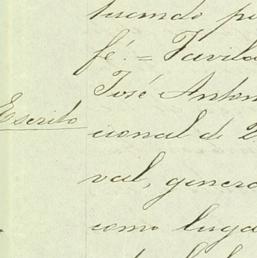 tuando p
fé. = Favila
José Anton
Escrito
cional de 2
val, genera
como luga